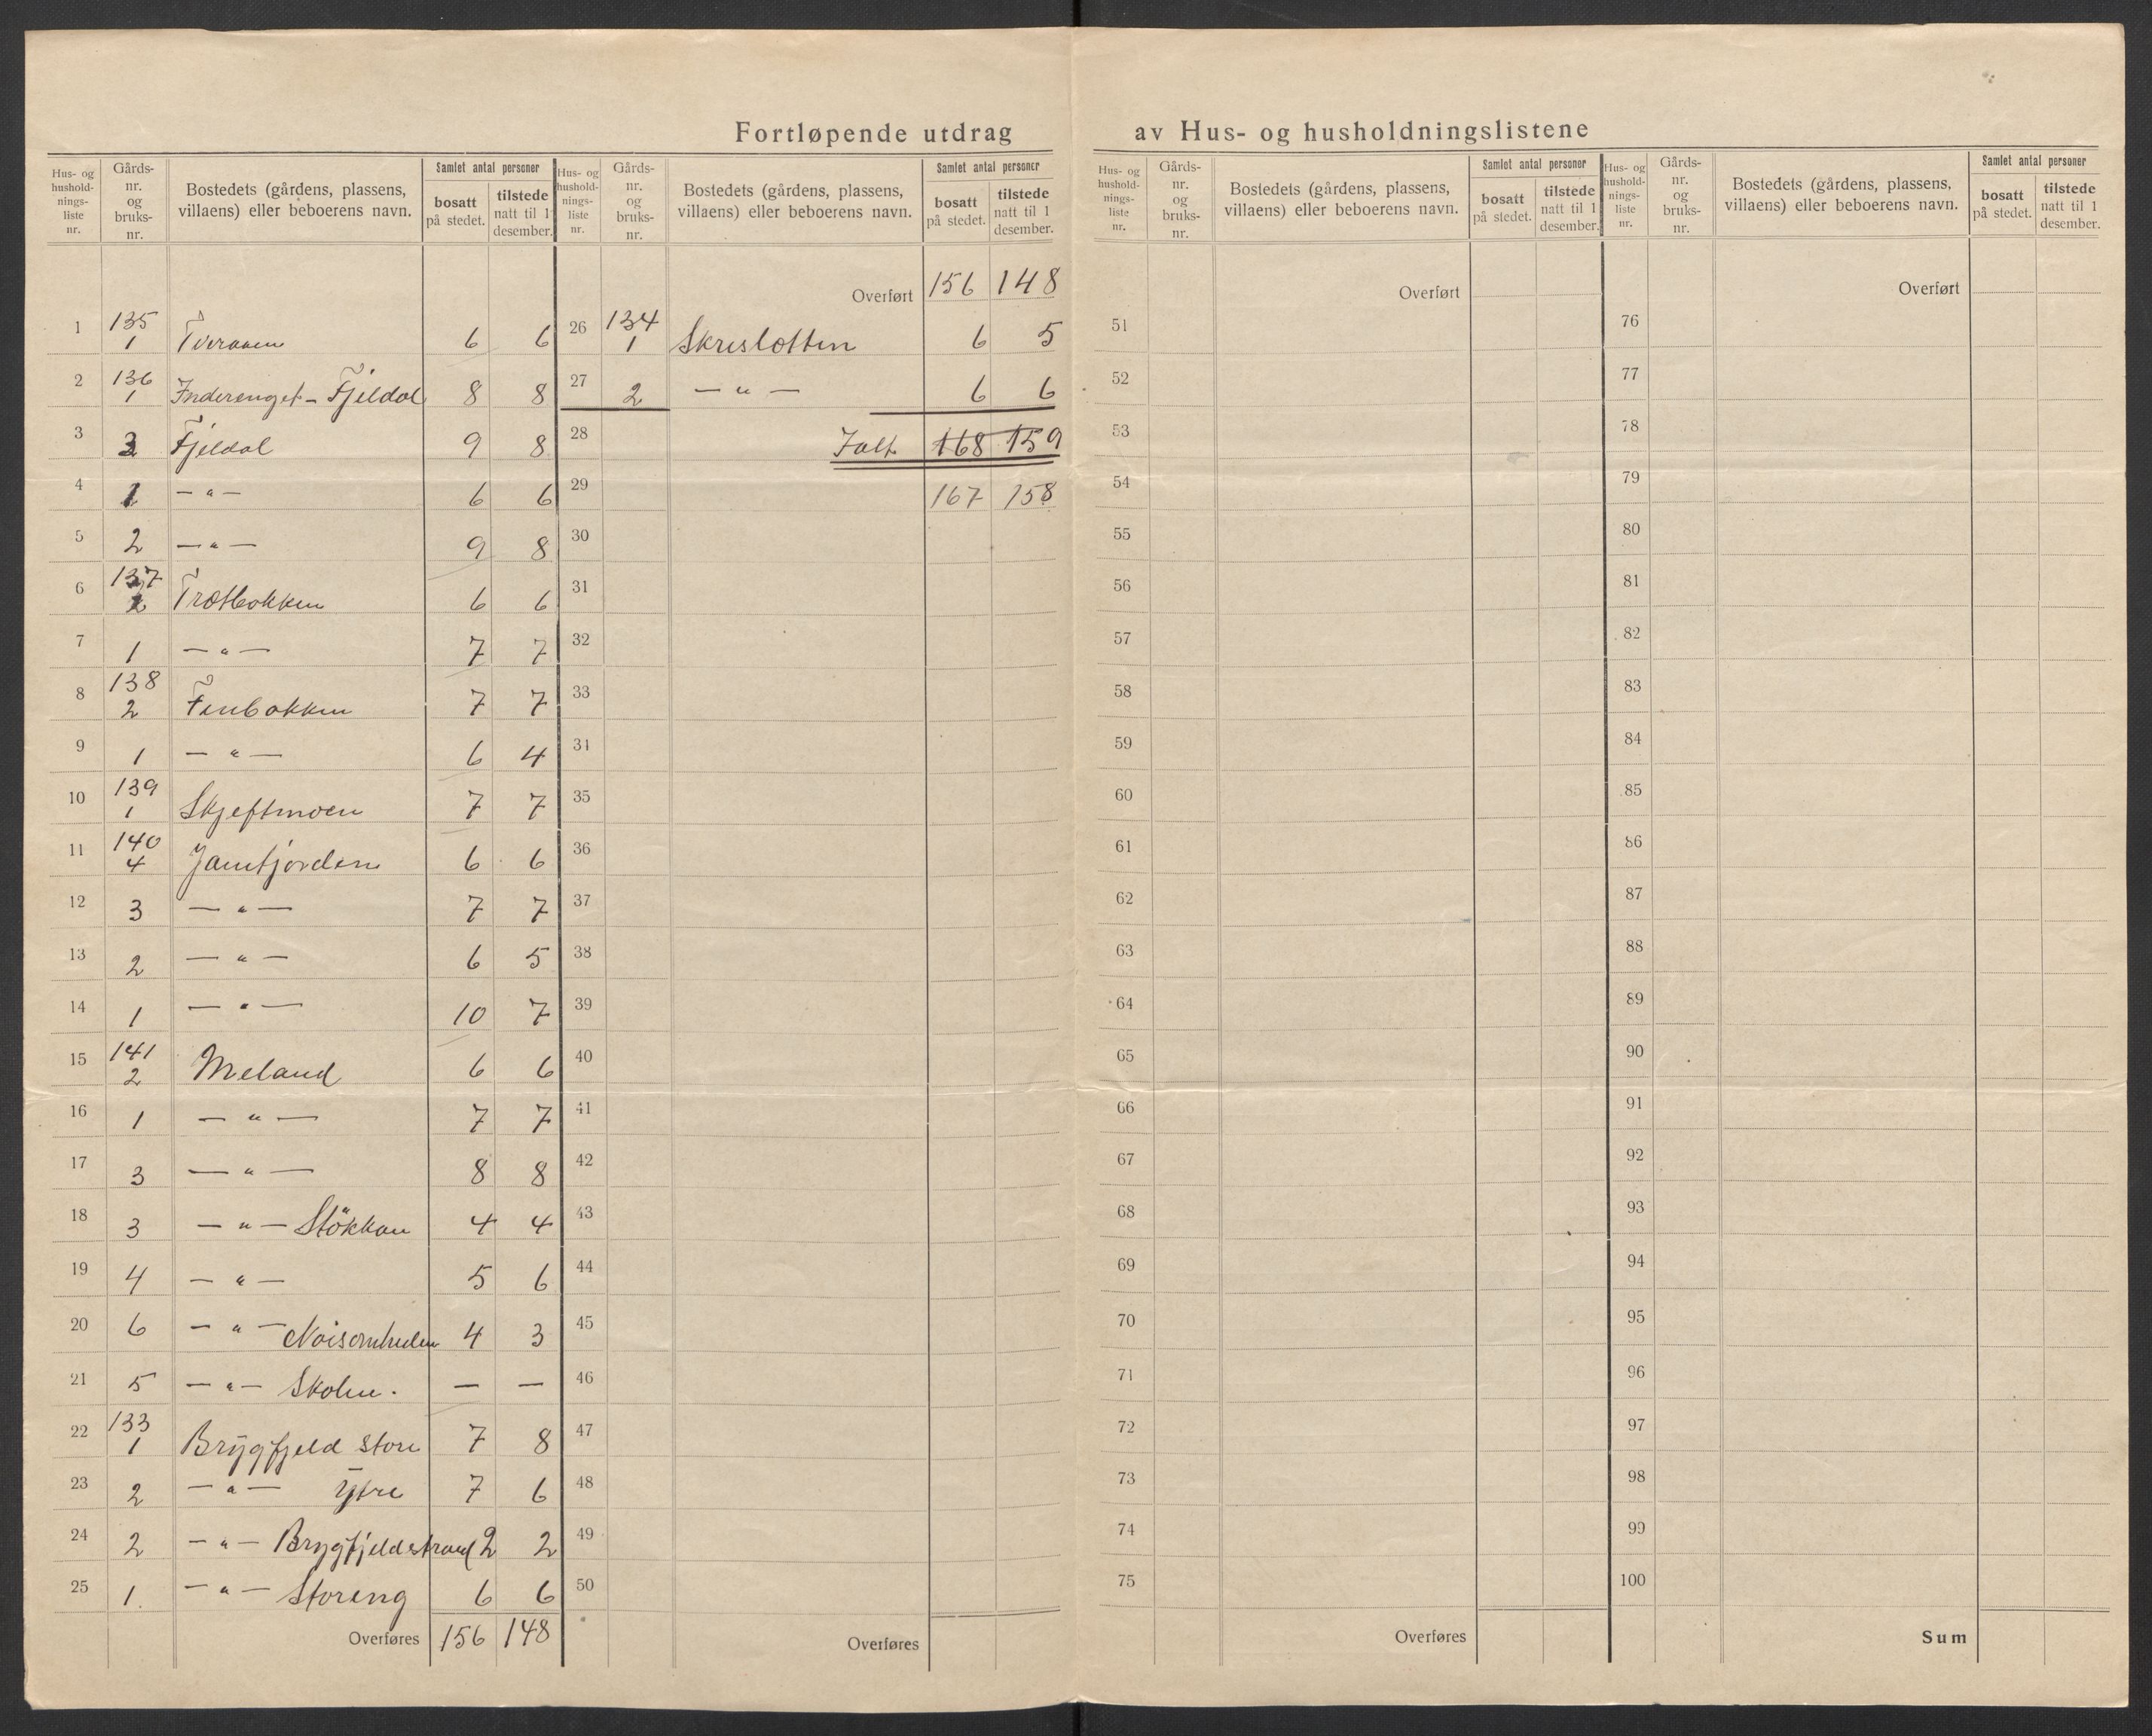 Fortløpende utdrag av Hus- og husholdningslistene
Hus- og hushold-nings-liste nr. | Gårds-nr. og bruks-nr. | Bostedets (gårdens, plassens, villaens) eller beboerens navn. | Samlet antal personer | bosatt på stedet. | tilstede natt til 1 desember.
1 135 1 Tveraaen 6 6
2 136 1 Inderenget - Fjeldal 8 8
3 3 Fjeldal 9 8
4 1 — " — 6 6
5 2 — " — 9 8
6 137 2 Trætbakken 6 6
7 1 — " — 7 7
8 138 2 Finbakken 7 7
9 1 — " — 6 4
10 139 1 Skjeftmoen 7 7
11 140 4 Jamtjorden 6 6
12 3 — " — 7 7
13 2 — " — 6 5
14 1 — " — 10 7
15 141 2 Meland 6 6
16 1 — " — 7 7
17 3 — " — 8 8
18 3 — " — Stökkan 4 4
19 4 — " — 5 6
20 6 — " — Nøisomheden 4 3
21 5 — " — Skolen. — —
22 133 1 Brygfjeld store 7 8
23 2 — " — Ytre 7 6
24 2 — " — Brygfjeldstrand 2 2
25 1. — " — Storeng 6 6
Overføres 156 148
Hus- og hushold-nings-liste nr. | Gårds-nr. og bruks-nr. | Bostedets (gårdens, plassens, villaens) eller beboerens navn. | Samlet antal personer | bosatt på stedet. | tilstede natt til 1 desember.
Overført 156 148
26 134 1 Skreslotten 6 5
27 2 — " — 6 6
28 Ialt 168 159
29 167 158
30
31
32
33
34
35
36
37
38
39
40
41
42
43
44
45
46
47
48
49
50
Overføres
Hus- og hushold-nings-liste nr. | Gårds-nr. og bruks-nr. | Bostedets (gårdens, plassens, villaens) eller beboerens navn. | Samlet antal personer | bosatt på stedet. | tilstede natt til 1 desember.
Overført
51
52
53
54
55
56
57
58
59
60
61
62
63
64
65
66
67
68
69
70
71
72
73
74
75
Overføres
Hus- og hushold-nings-liste nr. | Gårds-nr. og bruks-nr. | Bostedets (gårdens, plassens, villaens) eller beboerens navn. | Samlet antal personer | bosatt på stedet. | tilstede natt til 1 desember.
Overført
76
77
78
79
80
81
82
83
84
85
86
87
88
89
90
91
92
93
94
95
96
97
98
99
100
Sum